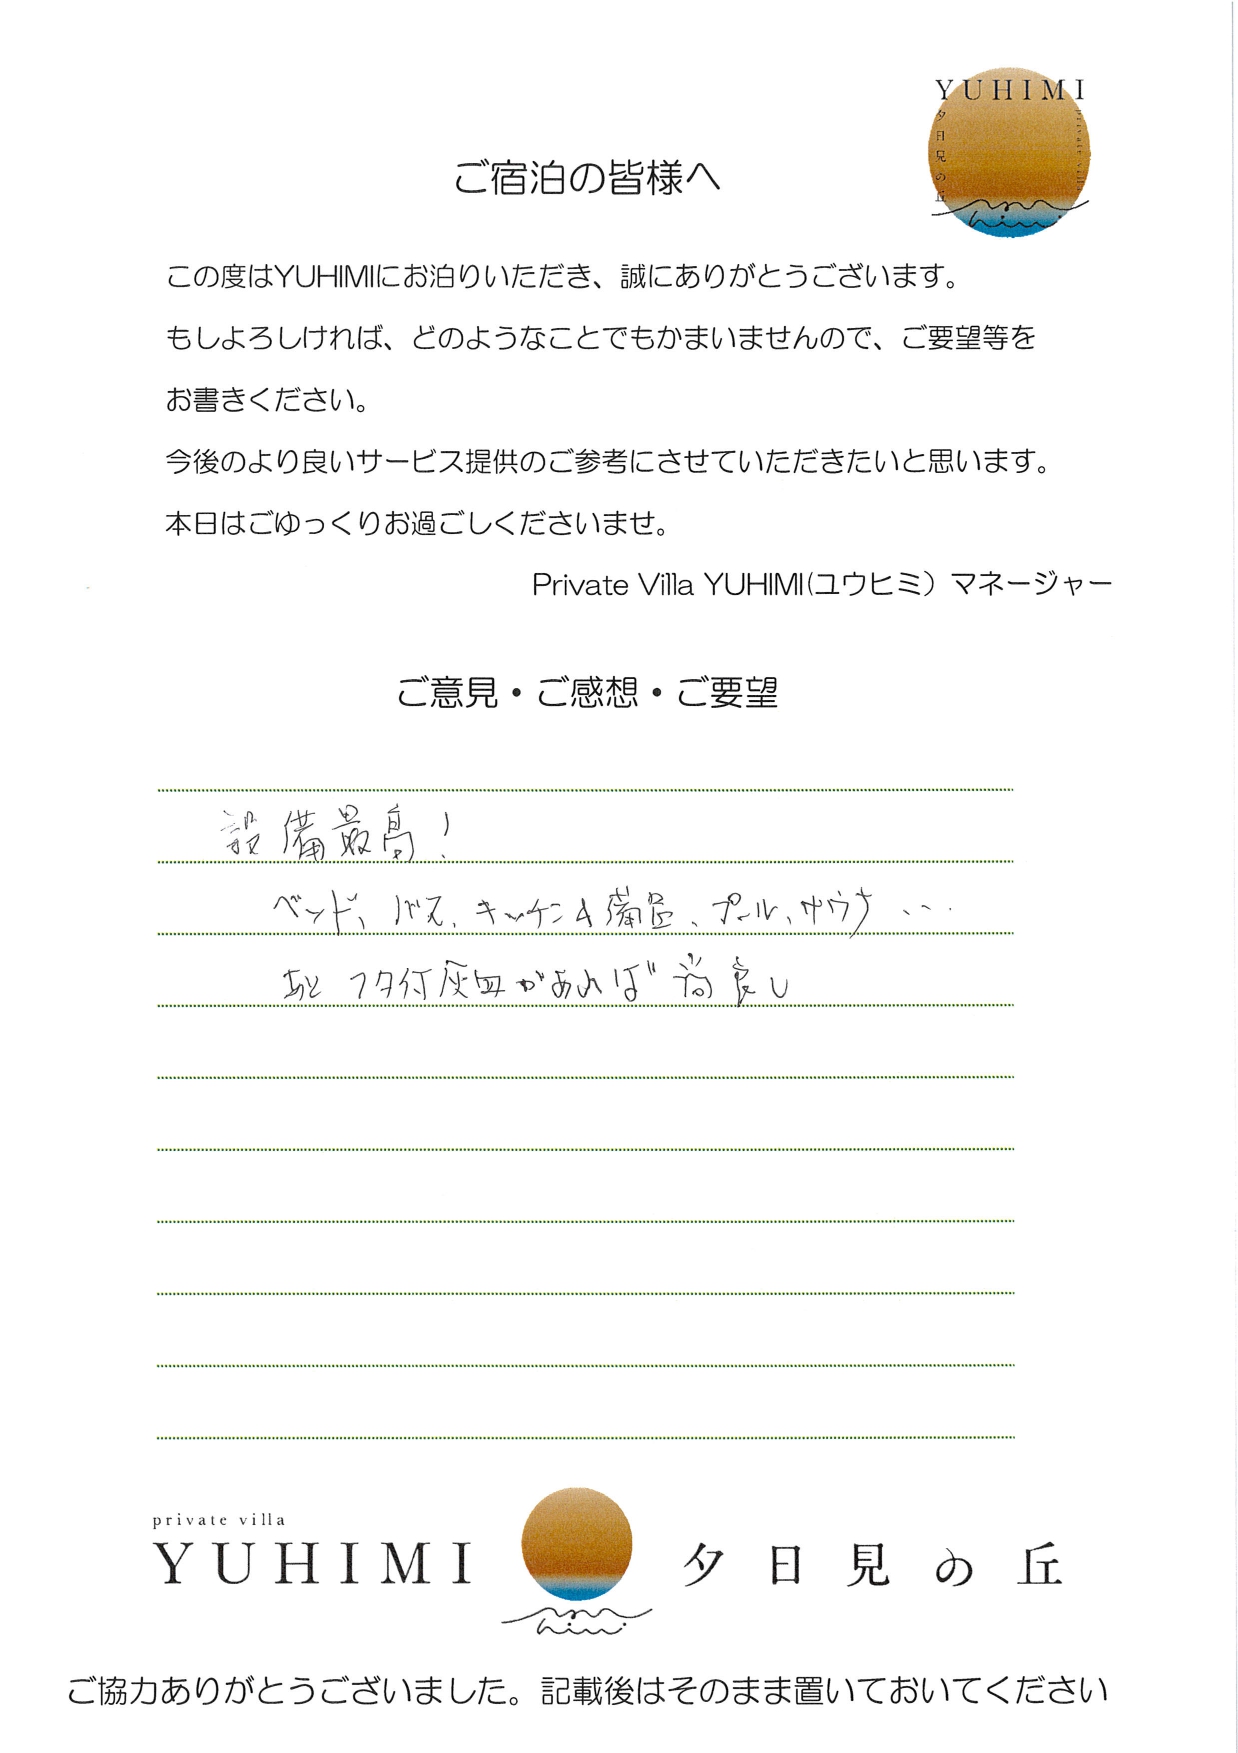 YUHIMI
夕日見の丘
private villa
ご宿泊の皆様へ
この度はYUHIMIにお泊りいただき、誠にありがとうございます。
もしよろしければ、どのようなことでもかまいませんので、ご要望等を
お書きください。
今後のより良いサービス提供のご参考にさせていただきたいと思います。
本日はごゆっくりお過ごしくださいませ。
Private Villa YUHIMI(ユウヒミ）マネージャー
ご意見・ご感想・ご要望
設備最高！
ベッド、バス、キッチン&備品、プール、サウナ、、、
あと フタ付灰皿があれば尚良し
private villa
YUHIMI 夕日見の丘
ご協力ありがとうございました。記載後はそのまま置いておいてください